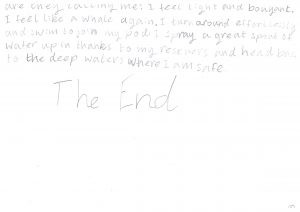 are they calling me? I feel light and bouyant.
I feel like a whale again. I turn around effortlessly
and swim to join my pod. I spray a great spout of
water up in thanks to my rescuers and head back
to the deep waters where I am safe.
The End